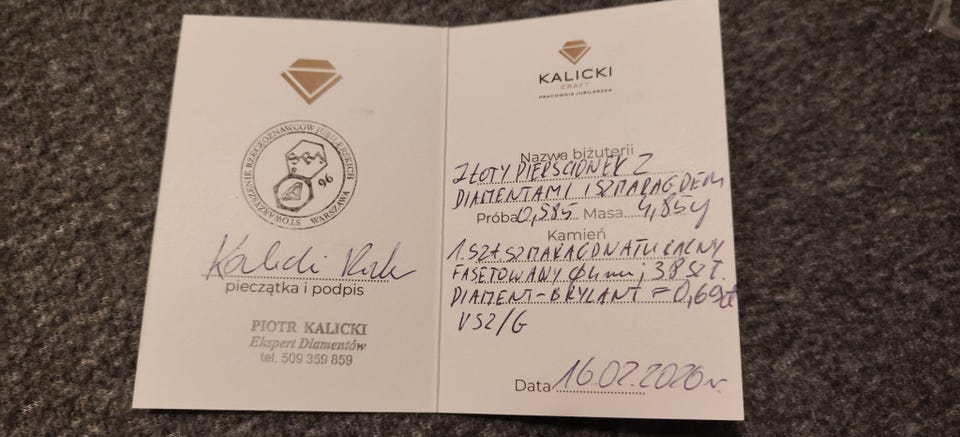 STOWARZYSZENIE RZECZOZNAWCÓW JUBILERSKICH
WARSZAWA
S.R.J.
96
Kalicki
pieczątka i podpis
PIOTR KALICKI
Ekspert Diamentów
tel. 509 359 859
KALICKI
CRAFT
PRACOWNIA JUBILERSKA
Nazwa biżuterii
ZŁOTY PIERŚCIONEK Z
DIAMENTAMI I SZMARAGDEM
Próba 0,585 Masa 4,85g
Kamień
1.SZt SZMARAGD NATURALNY
FASETOWANY Φ4mm, 38 SZt.
DIAMENT-BRYLANT = 0,69ct
VS2/G
Data 16.02.2026r.